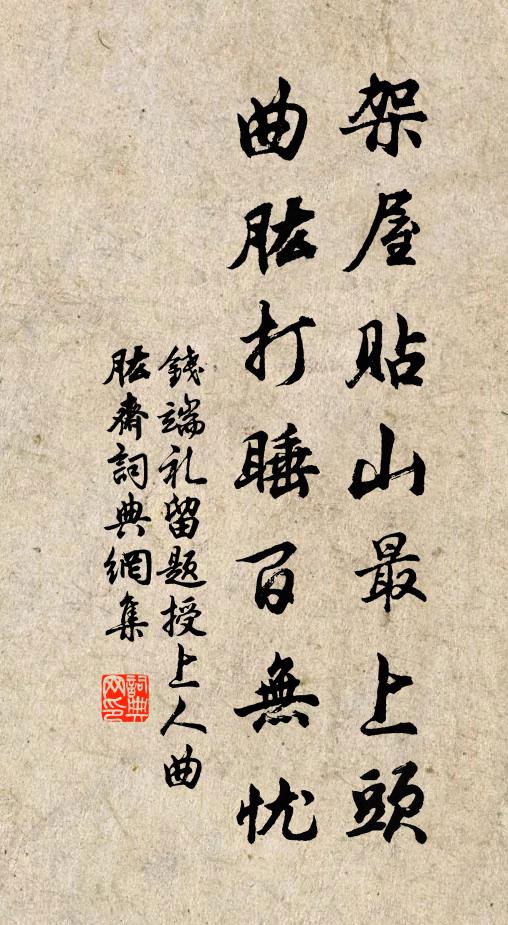 架屋貼山最上頭
曲肱打睡百無忧
錢端礼留題授上人曲
肱齋詞典網集
詞典
网印